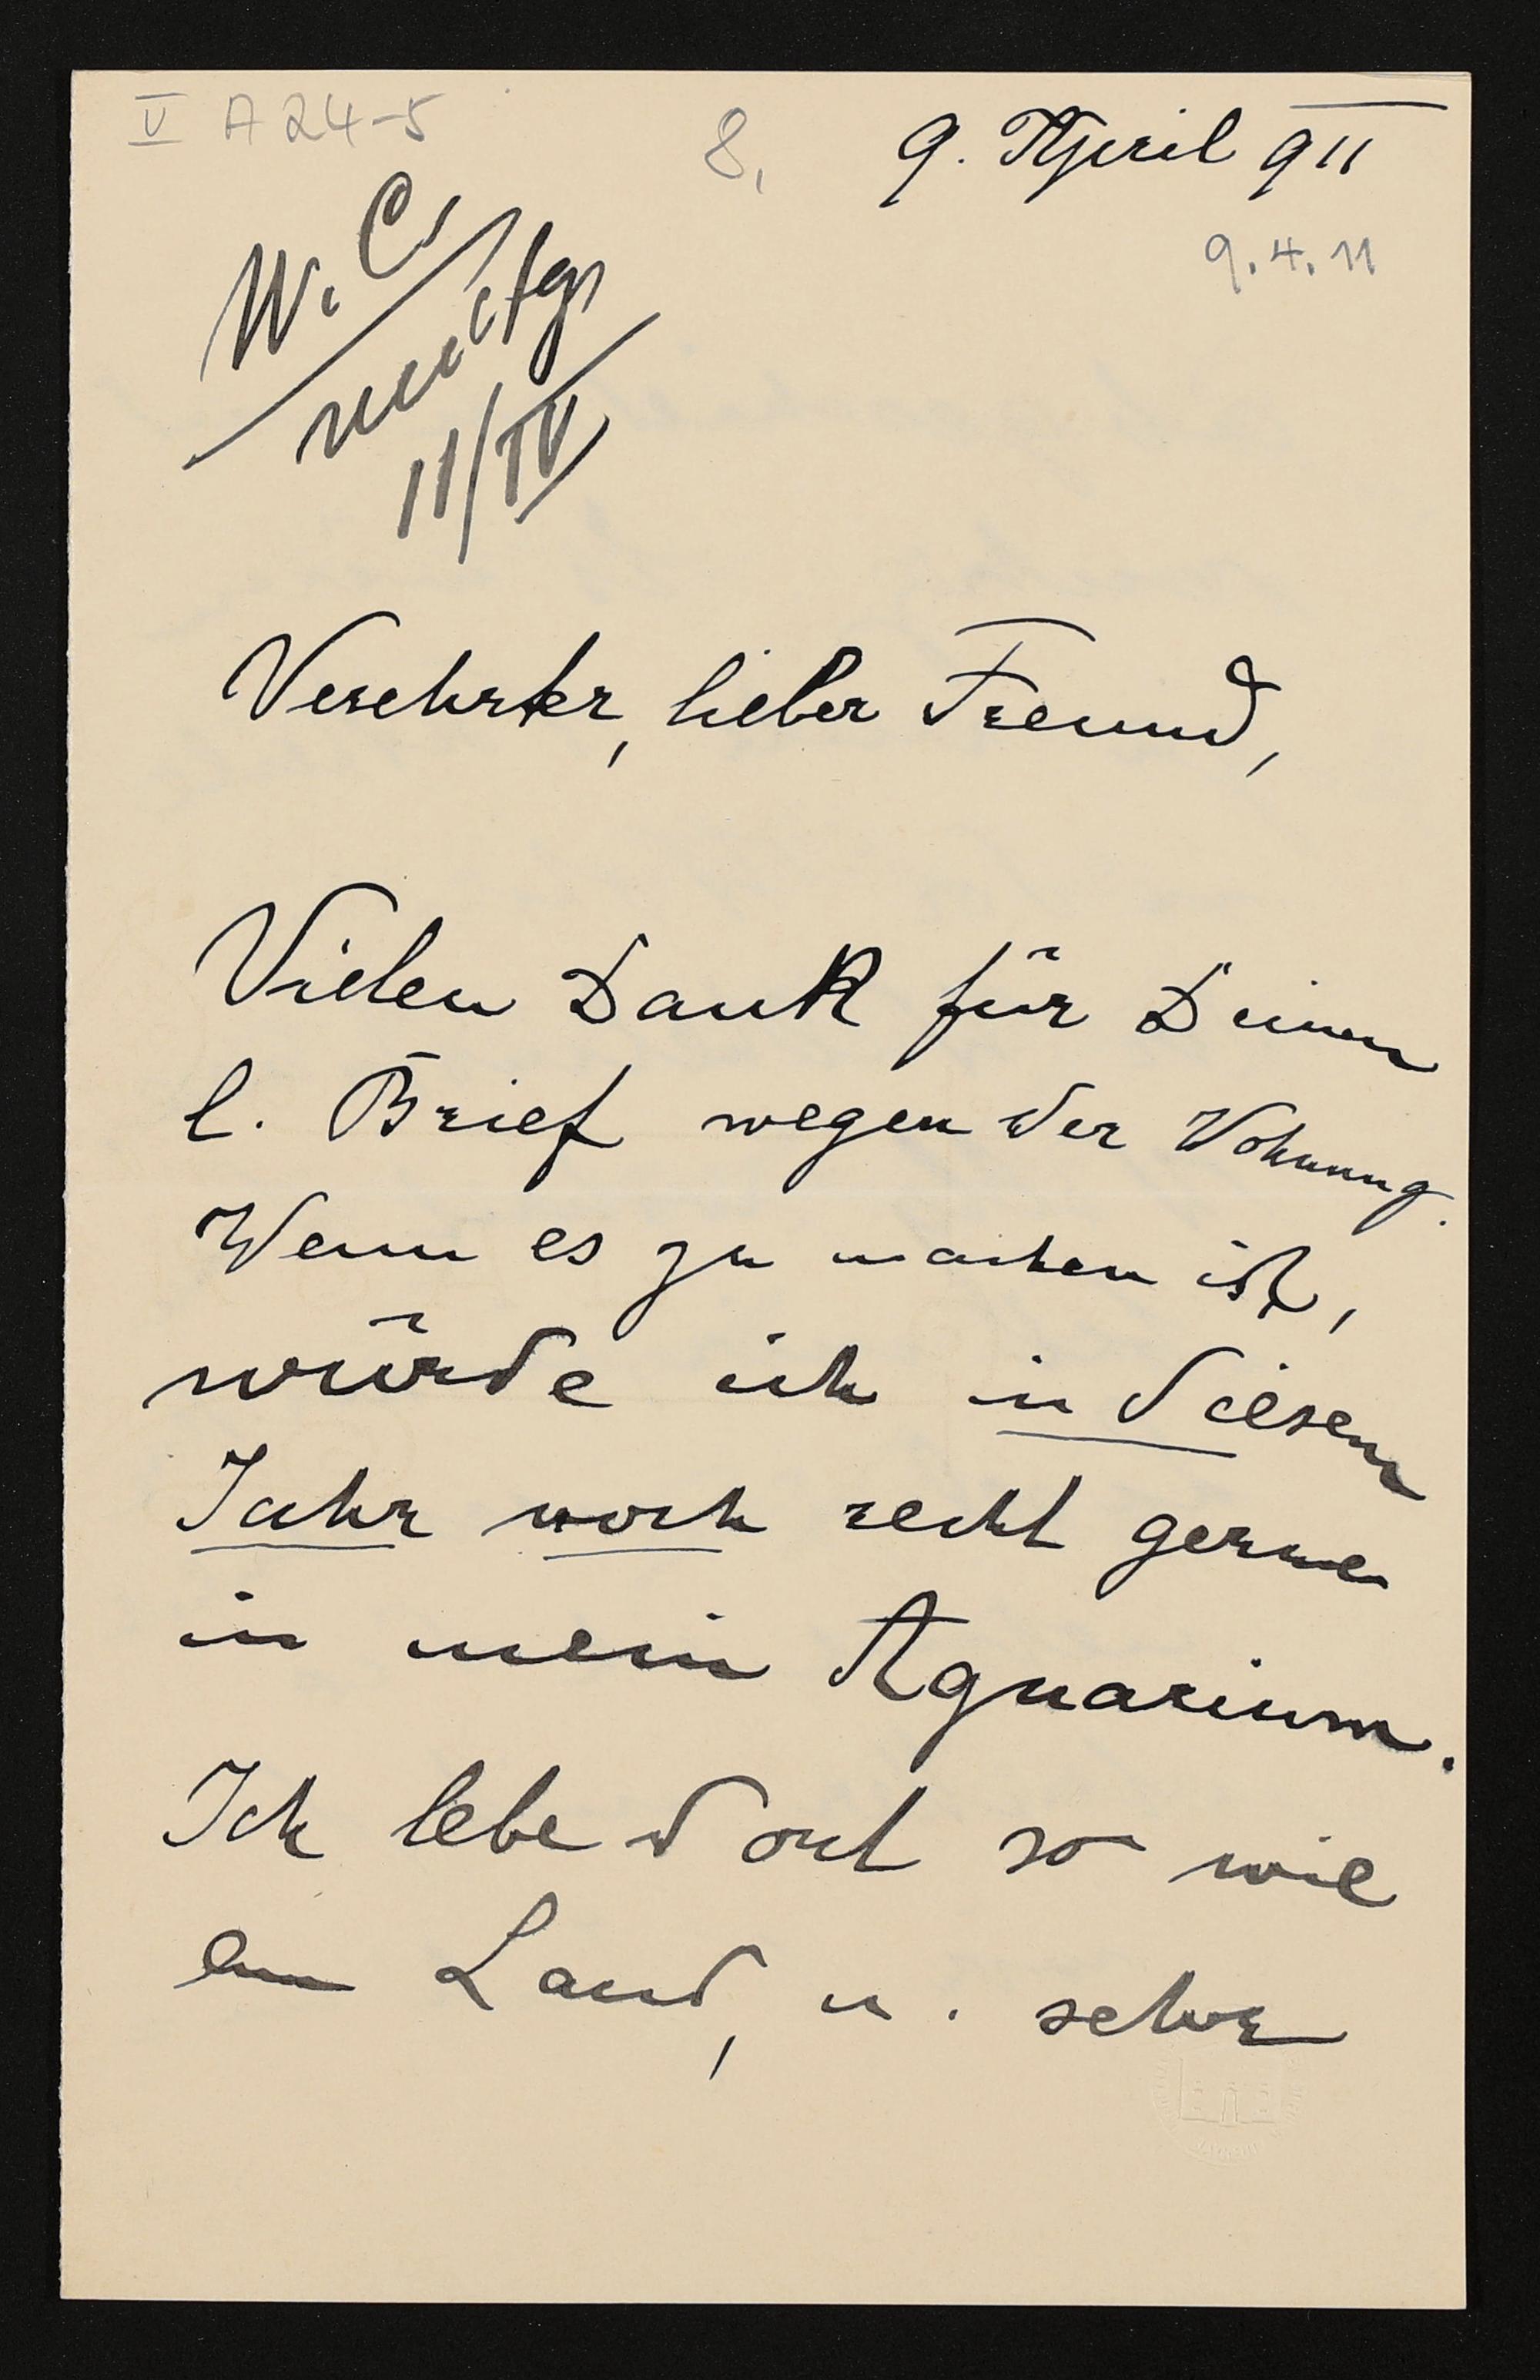 V A 24-5
8,
9. April 911
9.4.11
W. C.
11/IV
Verehrter, lieber Freund,
Vielen Dank für Deinen
l. Brief wegen der Wohnung.
Wenn es zu machen ist,
würde ich in diesem
Jahr noch recht gerne
in mein Aquarium.
Ich lebe dort so wie
am Land, u. sehr